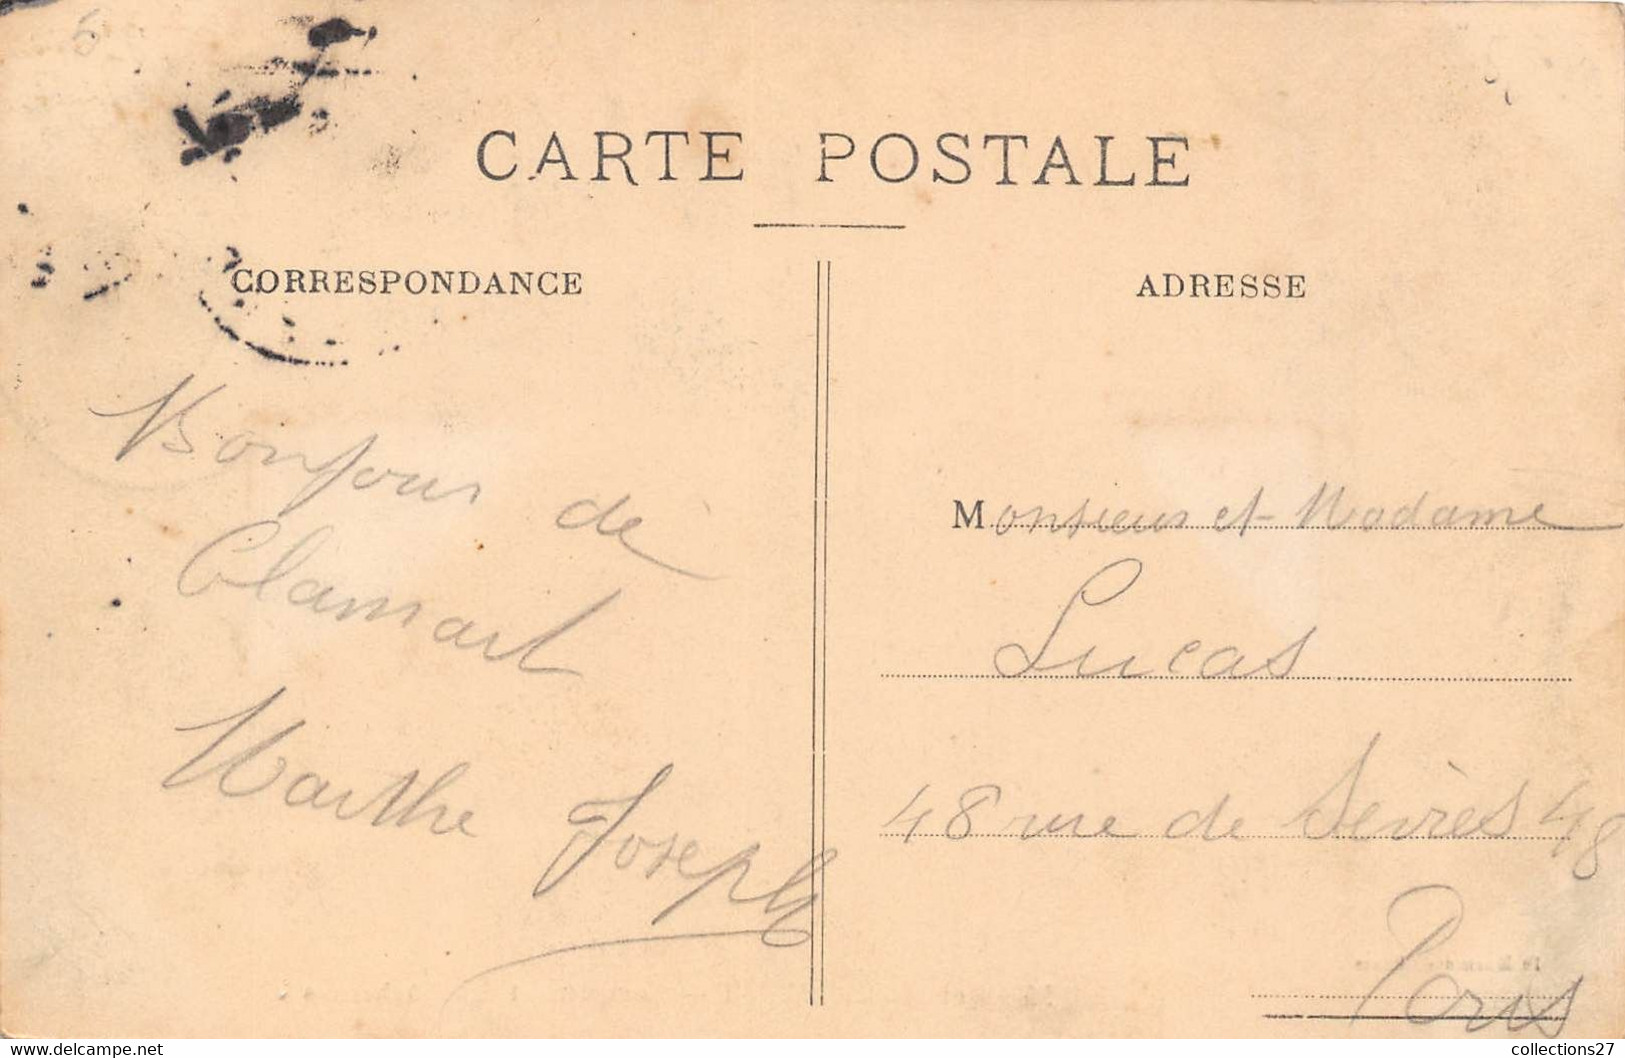 6
CARTE POSTALE
CORRESPONDANCE
ADRESSE
Bonjour de
Clamart
Marthe Joseph
Monsieur et Madame
Lucas
48 rue de Sèvres 48
Paris
collections27